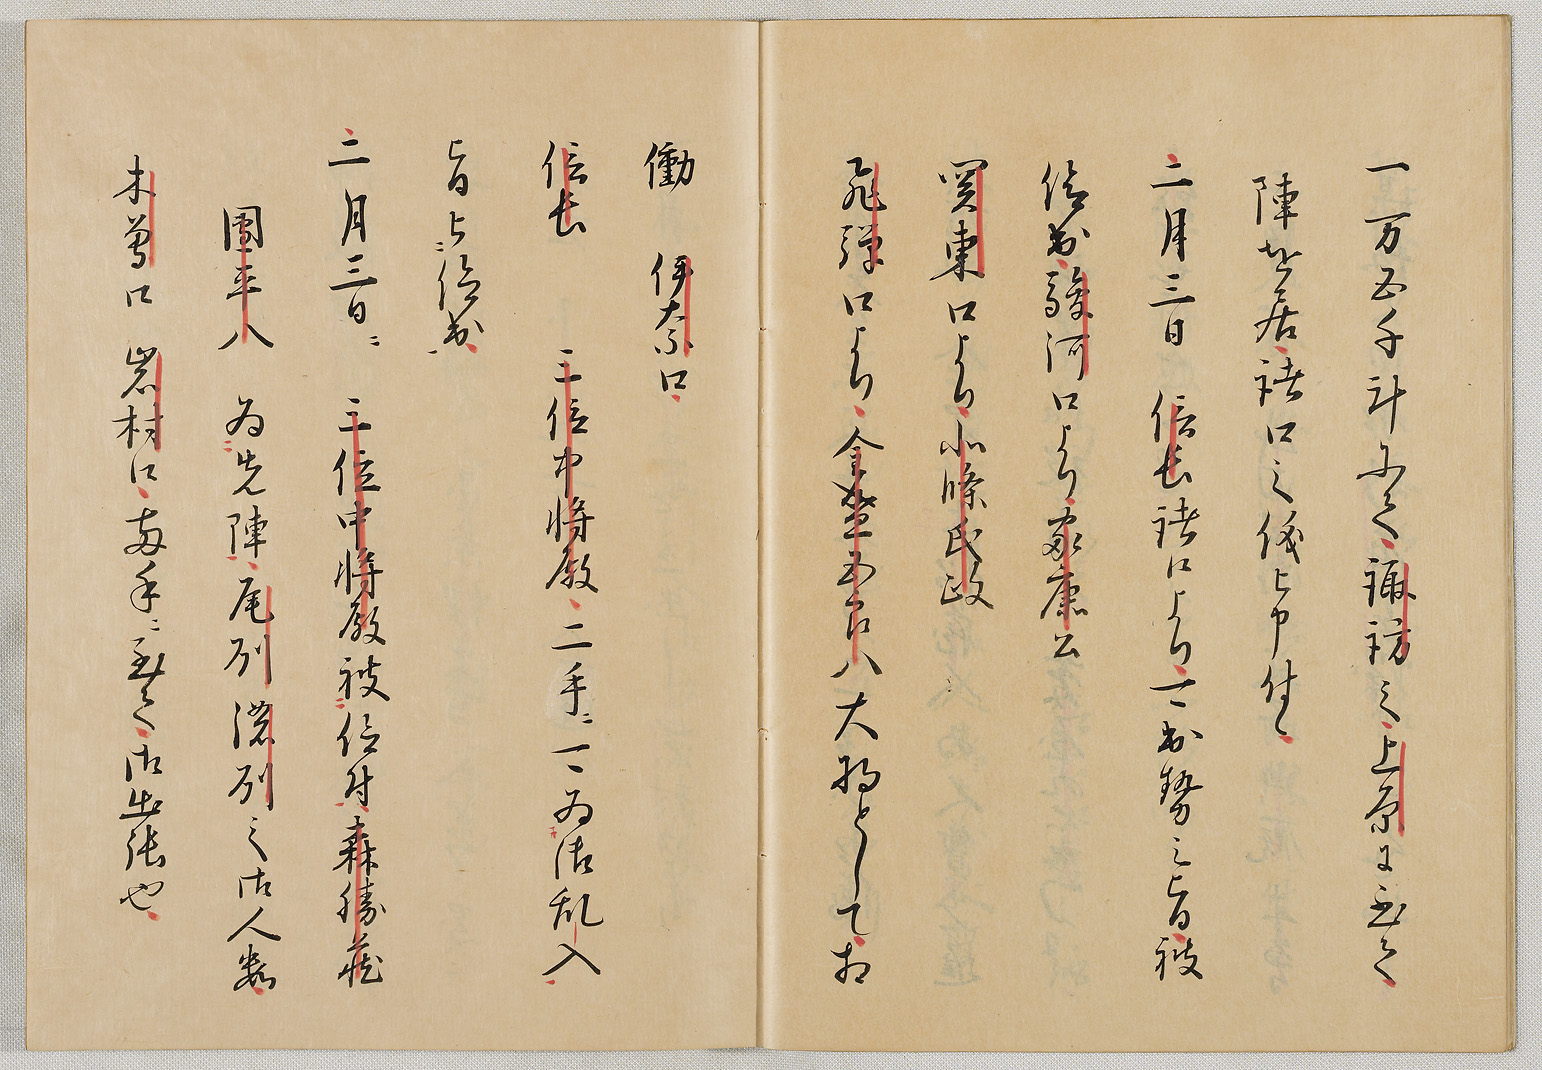 一万五千計にて諏訪之上原に至て
陣を居諸口之儀上申付候
二月三日信長諸口より可出勢之旨被
仰出駿河口より家康公
関東口より北條氏政
飛弾口より金森五郎八大将として相
働伊奈口
信長三位中将殿二手ニ可為御乱入
旨ニ被仰出
二月三日ニ三位中将殿被仰付森勝蔵
團平八為先陣尾州濃州之御人数
木曽口岩村口両手ニ至て御出張也